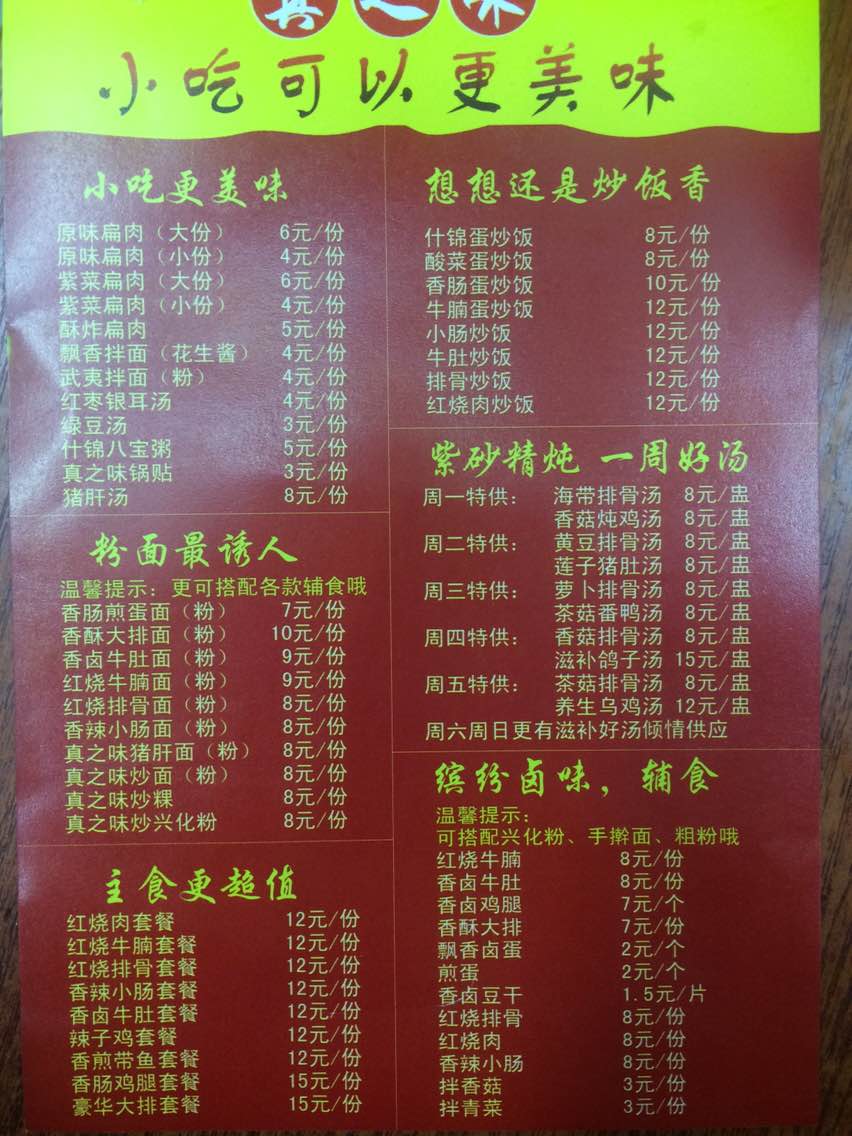 真之味
小吃可以更美味
小吃更美味
原味扁肉（大份） 6元/份
原味扁肉（小份） 4元/份
紫菜扁肉（大份） 6元/份
紫菜扁肉（小份） 4元/份
酥炸扁肉 5元/份
飘香拌面（花生酱） 4元/份
武夷拌面（粉） 4元/份
红枣银耳汤 4元/份
绿豆汤 3元/份
什锦八宝粥 5元/份
真之味锅贴 3元/份
猪肝汤 8元/份
粉面最诱人
温馨提示：更可搭配各款辅食哦
香肠煎蛋面（粉） 7元/份
香酥大排面（粉） 10元/份
香卤牛肚面（粉） 9元/份
红烧牛腩面（粉） 9元/份
红烧排骨面（粉） 8元/份
香辣小肠面（粉） 8元/份
真之味猪肝面（粉） 8元/份
真之味炒面（粉） 8元/份
真之味炒粿 8元/份
真之味炒兴化粉 8元/份
主食更超值
红烧肉套餐 12元/份
红烧牛腩套餐 12元/份
红烧排骨套餐 12元/份
香辣小肠套餐 12元/份
香卤牛肚套餐 12元/份
辣子鸡套餐 12元/份
香煎带鱼套餐 12元/份
香肠鸡腿套餐 15元/份
豪华大排套餐 15元/份
想想还是炒饭香
什锦蛋炒饭 8元/份
酸菜蛋炒饭 8元/份
香肠蛋炒饭 10元/份
牛腩蛋炒饭 12元/份
小肠炒饭 12元/份
牛肚炒饭 12元/份
排骨炒饭 12元/份
红烧肉炒饭 12元/份
紫砂精炖 一周好汤
周一特供： 海带排骨汤 8元/盅
香菇炖鸡汤 8元/盅
周二特供： 黄豆排骨汤 8元/盅
莲子猪肚汤 8元/盅
周三特供： 萝卜排骨汤 8元/盅
茶菇番鸭汤 8元/盅
周四特供： 香菇排骨汤 8元/盅
滋补鸽子汤 15元/盅
周五特供： 茶菇排骨汤 8元/盅
养生乌鸡汤 12元/盅
周六周日更有滋补好汤倾情供应
缤纷卤味，辅食
温馨提示：
可搭配兴化粉、手擀面、粗粉哦
红烧牛腩 8元/份
香卤牛肚 8元/份
香卤鸡腿 7元/个
香酥大排 7元/份
飘香卤蛋 2元/个
煎蛋 2元/个
香卤豆干 1.5元/片
红烧排骨 8元/份
红烧肉 8元/份
香辣小肠 8元/份
拌香菇 3元/份
拌青菜 3元/份